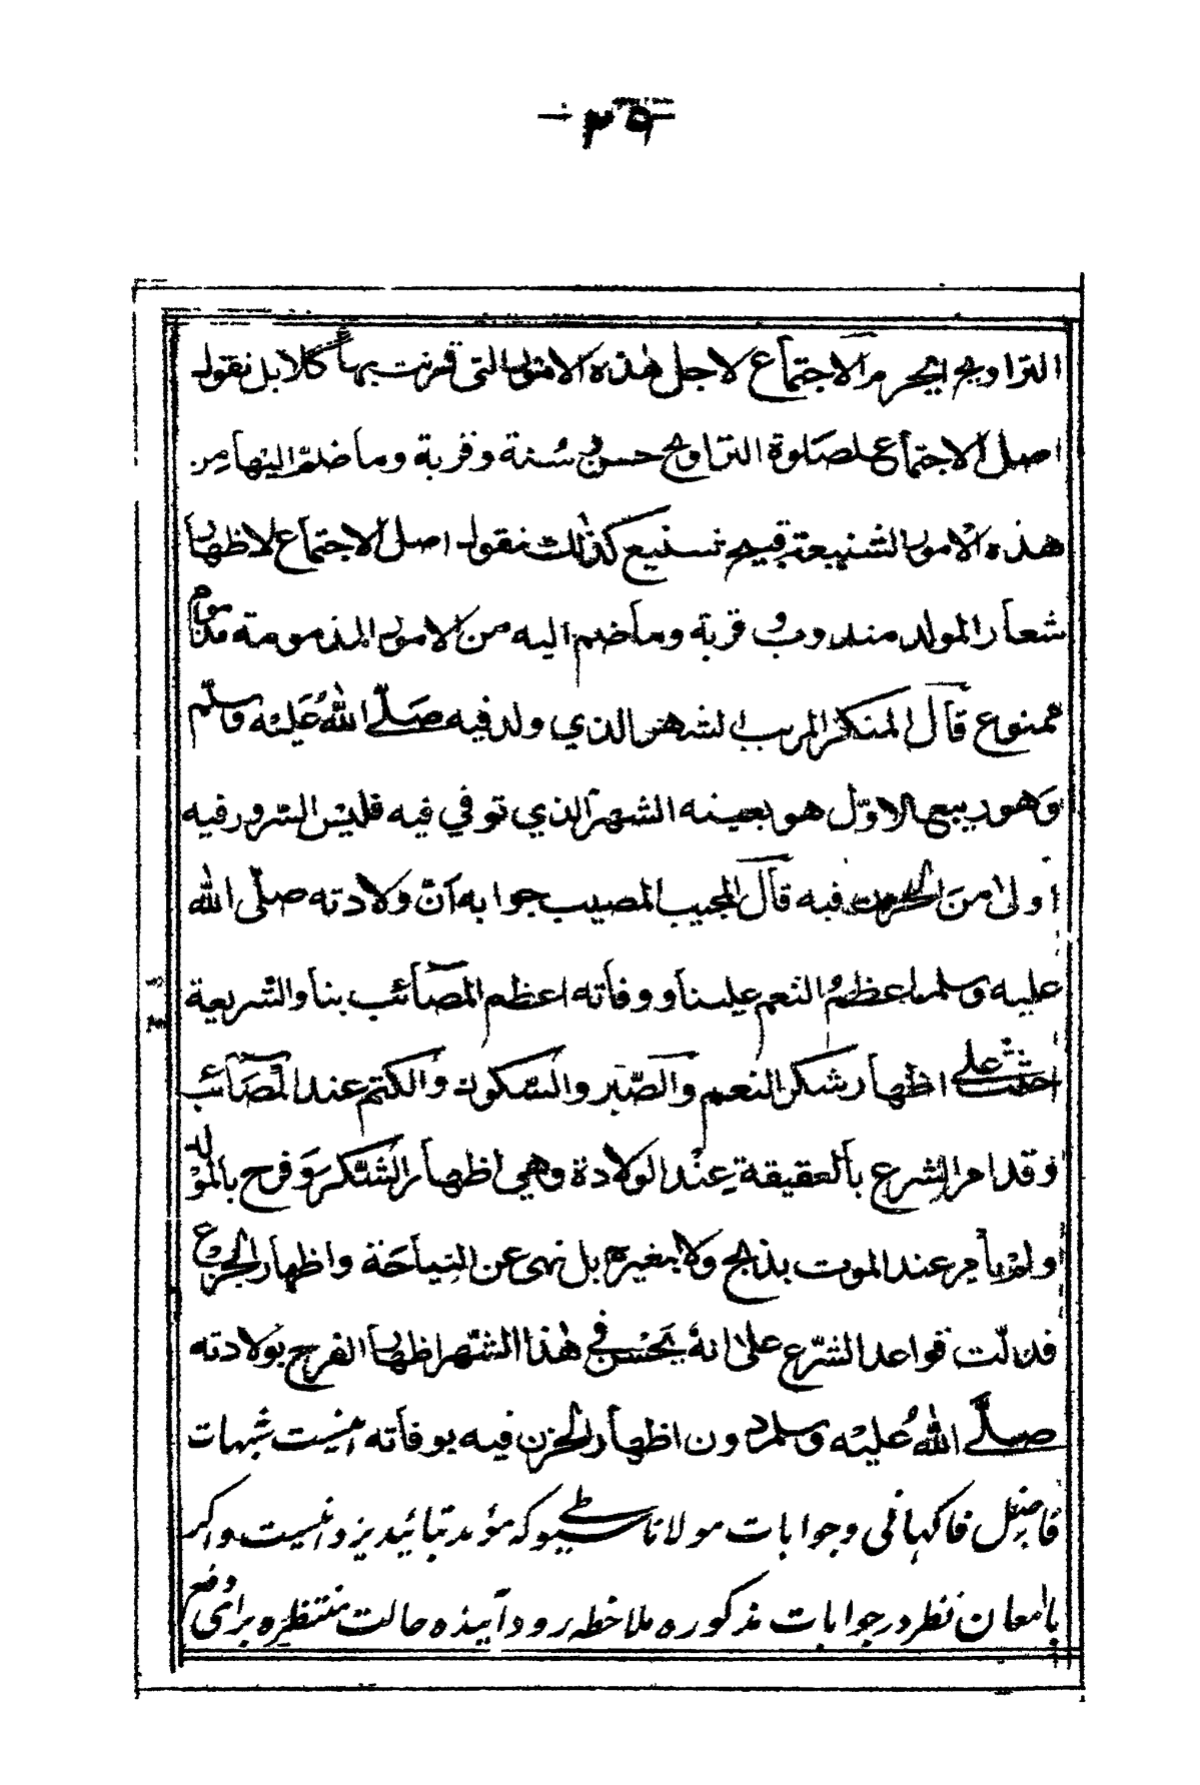 ٣٥
التراويح ايحرم الاجتماع لاجل هذه الامور التى قرنت بها كلا بل نقول
اصل الاجتماع لصلوة التراويح حسن وسنة وقربة وما ضم اليها من
هذه الامور الشنيعة قبيح شنيع كذلك نقول اصل الاجتماع لاظهار
شعار المولد مندوب و قربة وما ضم اليه من الامور المذمومة مذموم
ممنوع قال المنكر المريب الشهر الذي ولد فيه صلى الله عليه وسلم
وهو ربيع الاول هو بعينه الشهر الذي توفي فيه فليس السرور فيه
اولى من الحزن فيه قال المجيب المصيب جوابه ان ولادته صلى الله
عليه وسلم اعظم النعم علينا ووفاته اعظم المصائب بنا والشريعة
حثت على اظهار شكر النعم والصبر والسكون والكتم عند المصائب
وقد امر الشرع بالعقيقة عند الولادة وهي اظهار الشكر وفرح بالمولد
ولم يأمر عند الموت بذبح ولا بغيره بل نهى عن النياحة واظهار الجزع
فدلت قواعد الشرع على انه يحسن في هذا الشهر اظهار الفرح بولادته
صلى الله عليه وسلم دون اظهار الحزن فيه بوفاته اينست شبهات
فاضل فاكهانى وجوابات مولانا سيوطى كه مؤيد بتائيد يزدانيست و اگر
باامعان نظر در جوابات مذكوره ملاحظه رود آينده حالت منتظره براى دفع